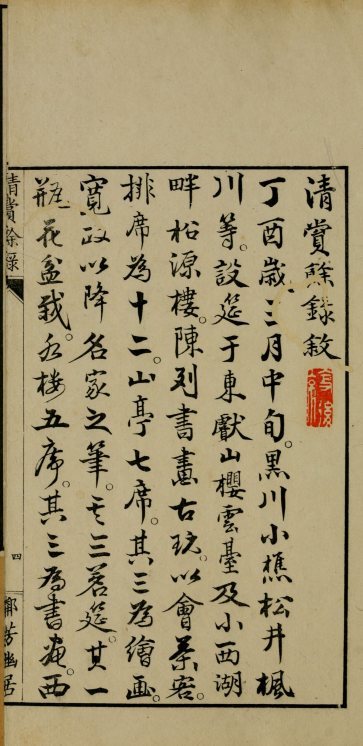 清賞餘錄敘
丁酉歲。三月中旬。黑川小樵松井楓
川等。設筵于東獻山櫻雲臺及小西湖
畔松源樓。陳列書畫古玩。以會茶客。
排席為十二。山亭七席。其三為繪畫。
寬政以降名家之筆。其三茗筵。其一
瓶花盆栽。水樓五席。其三為書菴。西
清賞餘錄
四
幽居